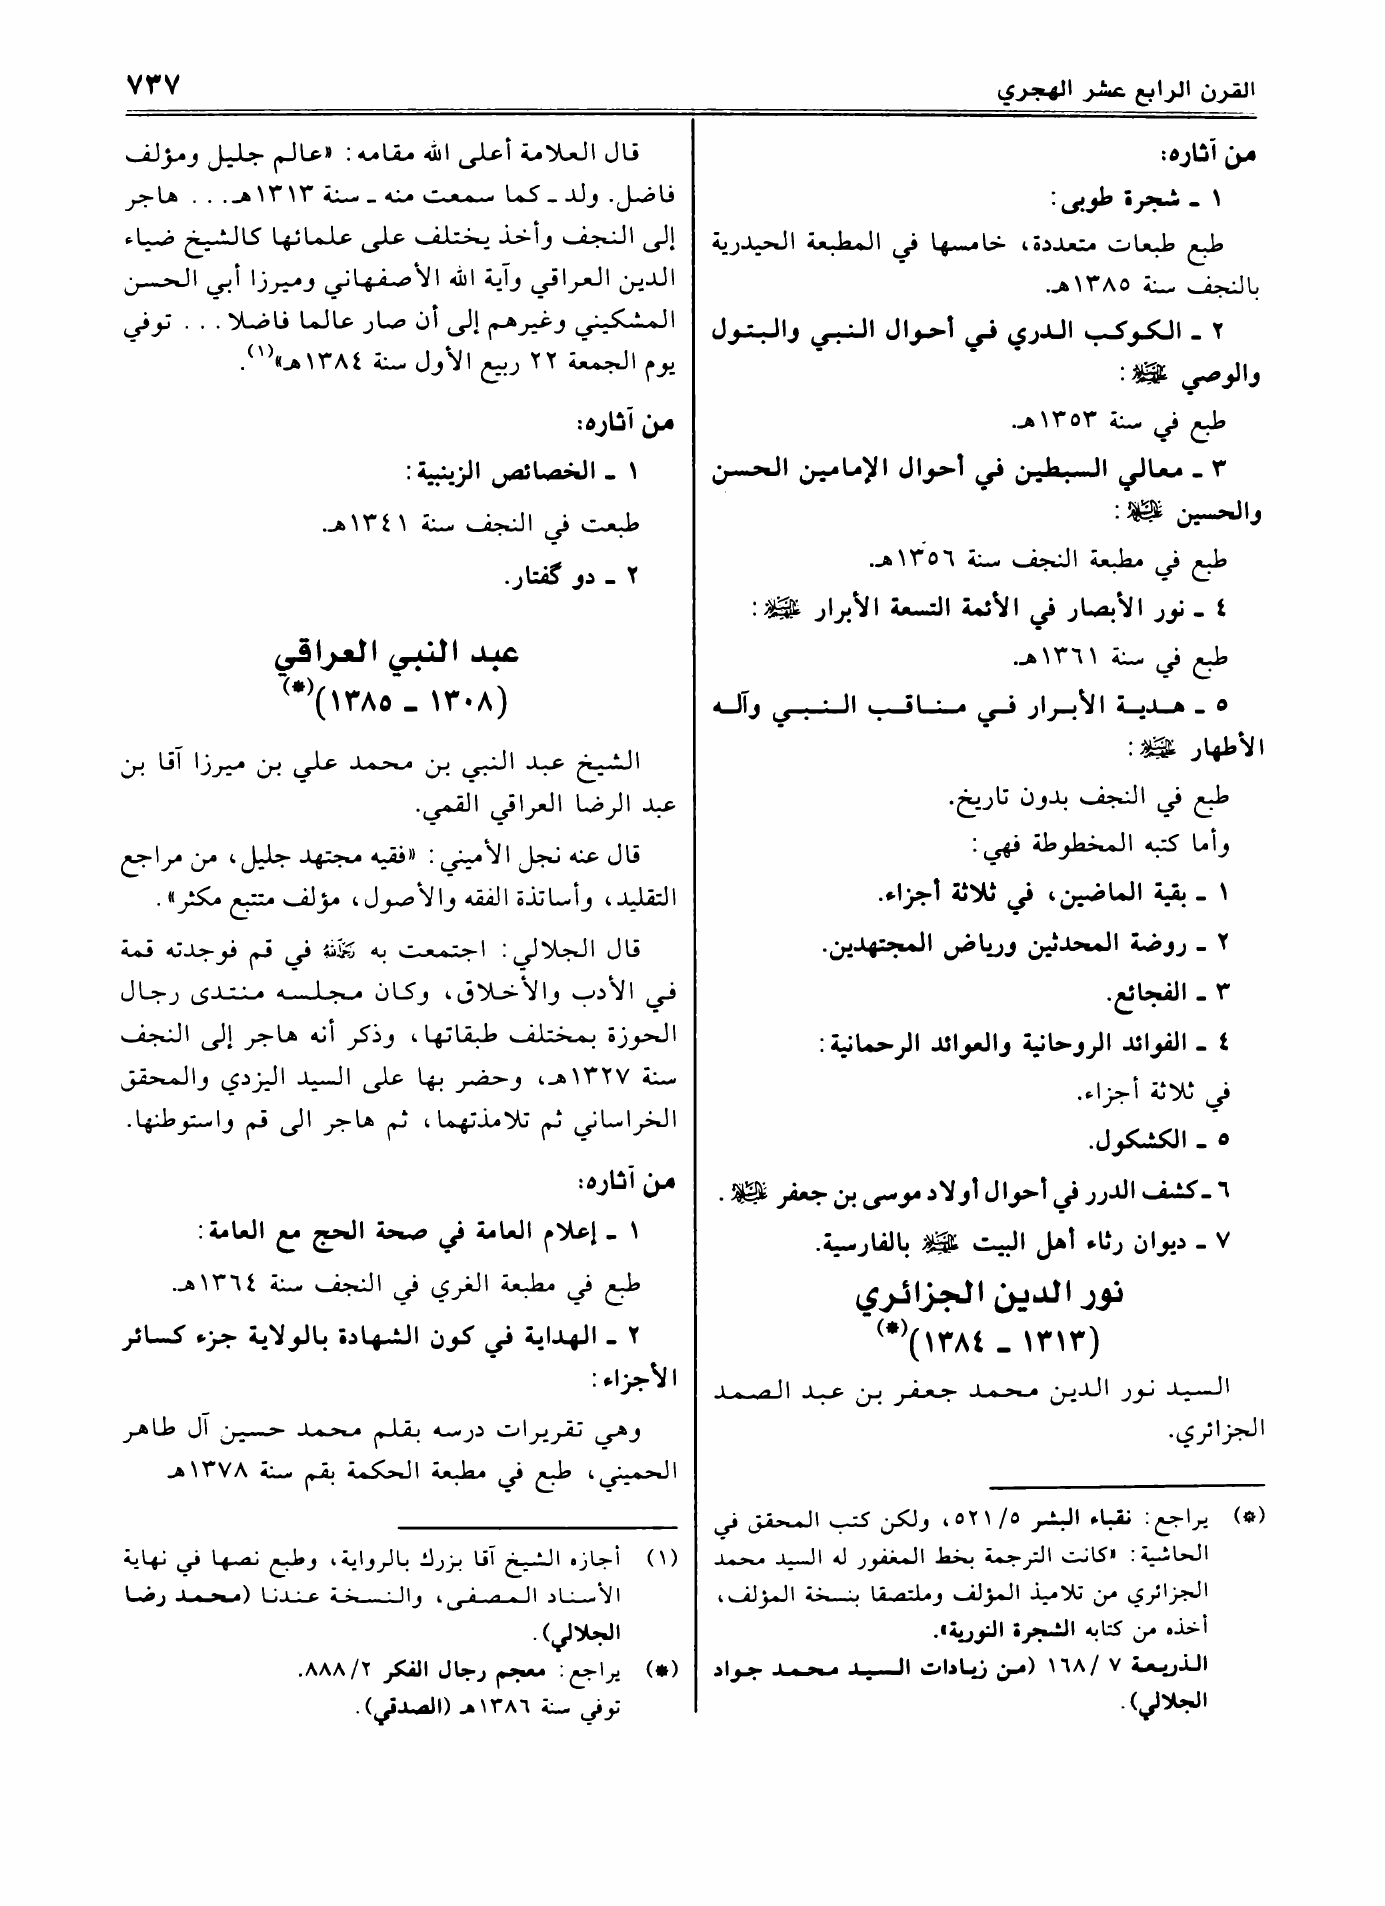 القرن الرابع عشر الهجري
٧٣٧
من آثاره:
١ ـ شجرة طوبى:
طبع طبعات متعددة، خامسها في المطبعة الحيدرية
بالنجف سنة ١٣٨٥هـ.
٢ ـ الكوكب الدري في أحوال النبي والبتول
والوصي :
طبع في سنة ١٣٥٣هـ.
٣ ـ معالي السبطين في أحوال الإمامين الحسن
والحسين :
طبع في مطبعة النجف سنة ١٣٥٦هـ.
٤ ـ نور الأبصار في الأئمة التسعة الأبرار :
طبع في سنة ١٣٦١هـ.
٥ ـ هدية الأبرار في مناقب النبي وآله
الأطهار :
طبع في النجف بدون تاريخ.
وأما كتبه المخطوطة فهي:
١ ـ بقية الماضين، في ثلاثة أجزاء.
٢ ـ روضة المحدثين ورياض المجتهدين.
٣ ـ الفجائع.
٤ ـ الفوائد الروحانية والعوائد الرحمانية:
في ثلاثة أجزاء.
٥ ـ الكشكول.
٦ ـ كشف الدرر في أحوال أولاد موسى بن جعفر .
٧ ـ ديوان رثاء أهل البيت بالفارسية.
نور الدين الجزائري
(١٣١٣ ـ ١٣٨٤)(*)
السيد نور الدين محمد جعفر بن عبد الصمد
الجزائري.
(*) يراجع: نقباء البشر ٥٢١/٥، ولكن كتب المحقق في
الحاشية: «كانت الترجمة بخط المغفور له السيد محمد
الجزائري من تلاميذ المؤلف وملتصقا بنسخة المؤلف،
أخذه من كتابه الشجرة النورية».
الذريعة ٧/ ١٦٨ (من زيادات السيد محمد جواد
الجلالي).
قال العلامة أعلى الله مقامه: «عالم جليل ومؤلف
فاضل. ولد ـ كما سمعت منه ـ سنة ١٣١٣هـ... هاجر
إلى النجف وأخذ يختلف على علمائها كالشيخ ضياء
الدين العراقي وآية الله الأصفهاني وميرزا أبي الحسن
المشكيني وغيرهم إلى أن صار عالما فاضلا... توفي
يوم الجمعة ٢٢ ربيع الأول سنة ١٣٨٤هـ»(١).
من آثاره:
١ ـ الخصائص الزينبية:
طبعت في النجف سنة ١٣٤١هـ.
٢ ـ دو گفتار.
عبد النبي العراقي
(١٣٠٨ ـ ١٣٨٥)(*)
الشيخ عبد النبي بن محمد علي بن ميرزا آقا بن
عبد الرضا العراقي القمي.
قال عنه نجل الأميني: «فقيه مجتهد جليل، من مراجع
التقليد، وأساتذة الفقه والأصول، مؤلف متتبع مكثر».
قال الجلالي: اجتمعت به في قم فوجدته قمة
في الأدب والأخلاق، وكان مجلسه منتدى رجال
الحوزة بمختلف طبقاتها، وذكر أنه هاجر إلى النجف
سنة ١٣٢٧هـ، وحضر بها على السيد اليزدي والمحقق
الخراساني ثم تلامذتهما، ثم هاجر الى قم واستوطنها.
من آثاره:
١ ـ إعلام العامة في صحة الحج مع العامة:
طبع في مطبعة الغري في النجف سنة ١٣٦٤هـ.
٢ ـ الهداية في كون الشهادة بالولاية جزء كسائر
الأجزاء:
وهي تقريرات درسه بقلم محمد حسين آل طاهر
الحميني، طبع في مطبعة الحكمة بقم سنة ١٣٧٨هـ
(١) أجازه الشيخ آقا بزرك بالرواية، وطبع نصها في نهاية
الأسناد المصفى، والنسخة عندنا (محمد رضا
الجلالي).
(*) يراجع: معجم رجال الفكر ٢/ ٨٨٨.
توفي سنة ١٣٨٦هـ (الصدقي).